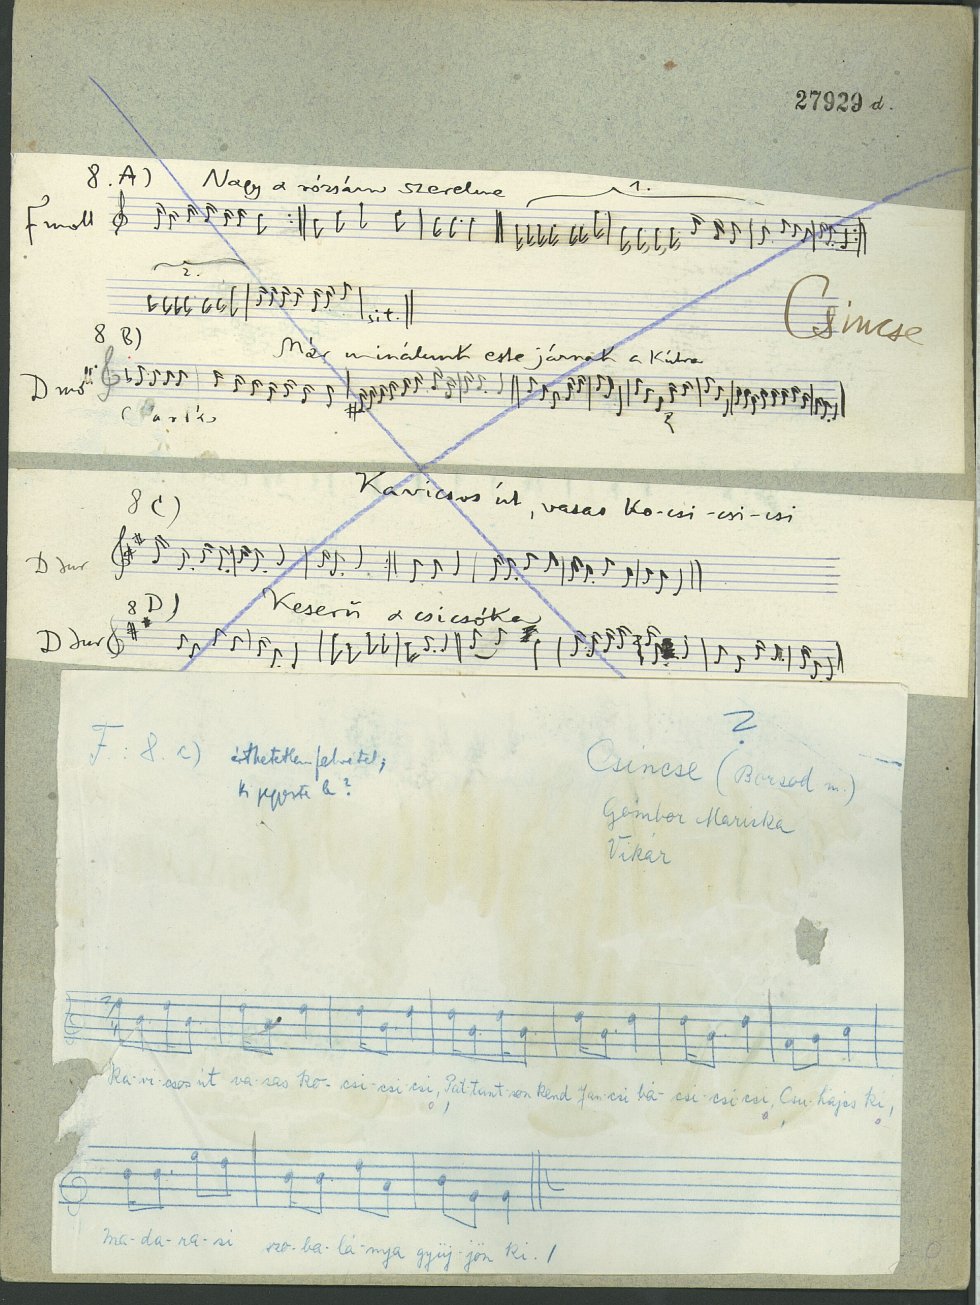 27929 d.
8. A) Nagy a rózsám szerelme
1.
F moll
2.
sit.
Csincse
8 B)
Már minálunk este járnak a Kútra
D moll
8 C)
Kavicsos út, vasas Ko-csi-csi-csi
D dur
8 D) Keserű a csicsóka
D dur
?
F: 8. c) érthetetlen felvétel;
Ki jegyezte le?
Csincse (Borsod m.)
Gömbör Mariska
Vikár
Ka-vi-csos út va-sas ko-csi-csi-csi, Pat-tunt-son kend Jan-csi bá-csi-csi-csi, Csu-hajcs ki,
ma-da-ra-si szo-ba-lá-nya gyüj-jön ki. /